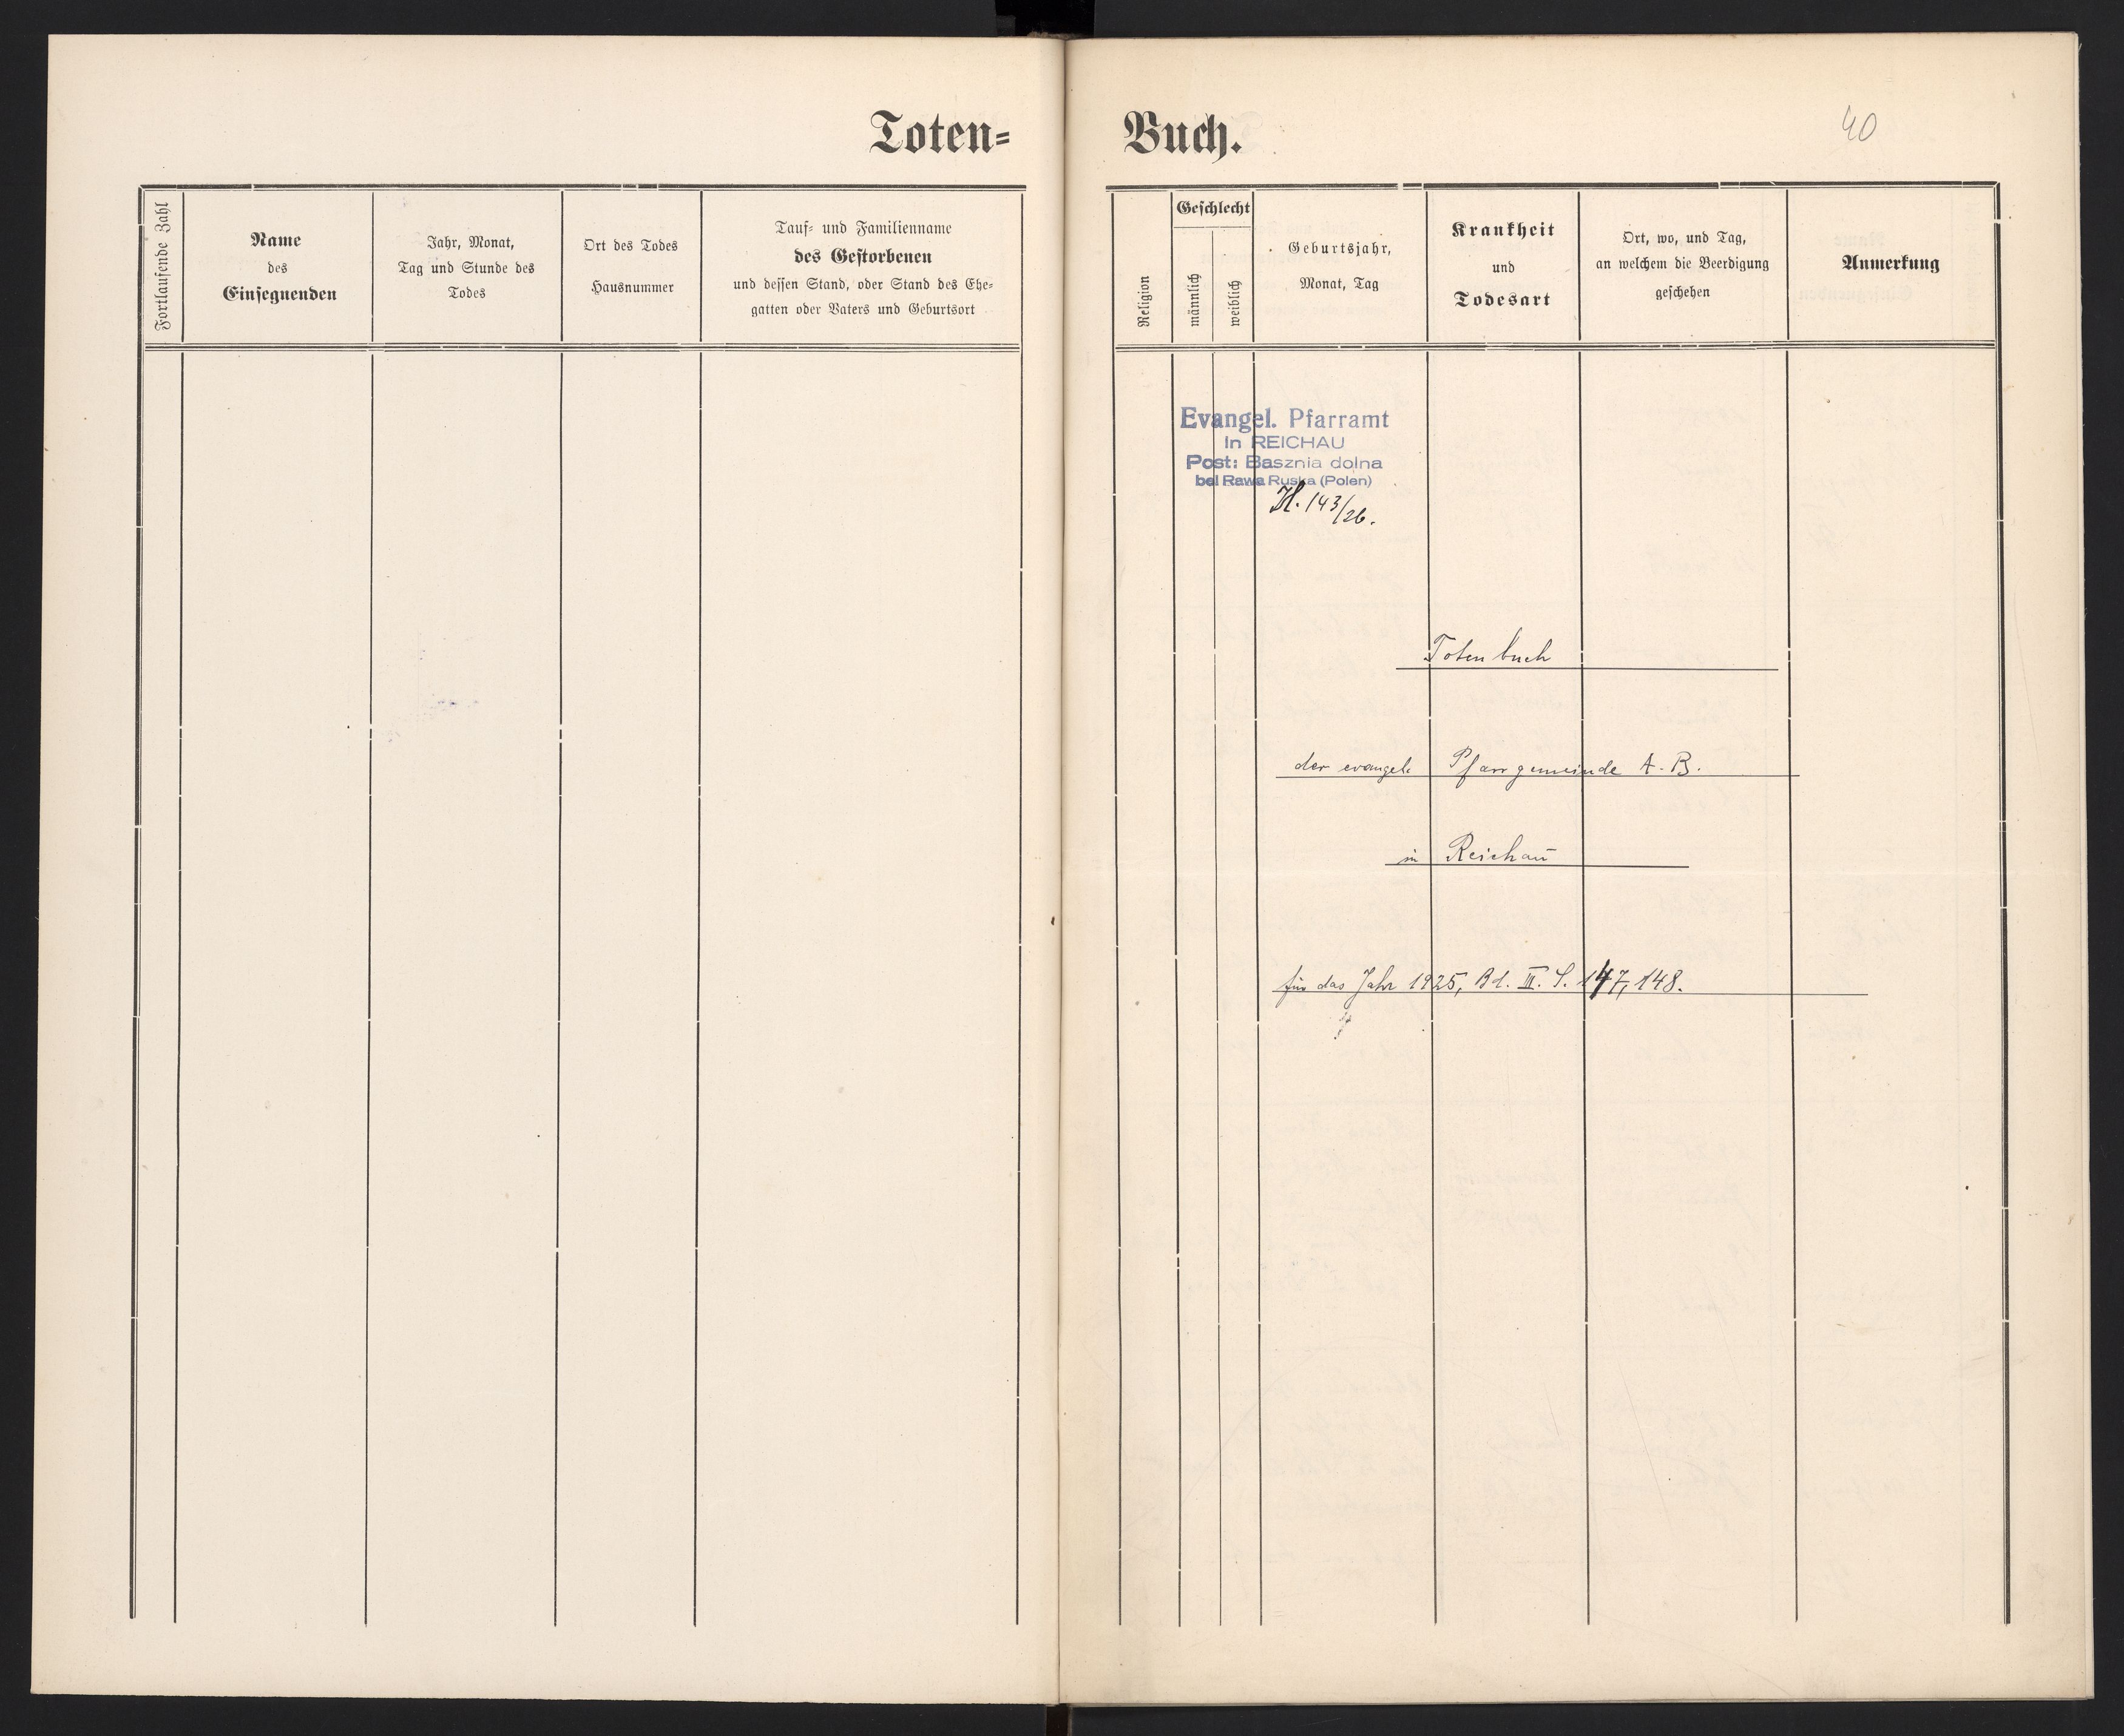 Toten-
Fortlaufende Zahl
Name
des
Einsegnenden
Jahr, Monat,
Tag und Stunde des
Todes
Ort des Todes
Hausnummer
Tauf- und Familienname
des Gestorbenen
und dessen Stand, oder Stand des Ehe-
gatten oder Vaters und Geburtsort
Buch.
40
Religion
Geschlecht
männlich
weiblich
Geburtsjahr,
Monat, Tag
Krankheit
und
Todesart
Ort, wo, und Tag,
an welchem die Beerdigung
geschehen
Anmerkung
Evangel. Pfarramt
in REICHAU
Post: Basznia dolna
bei Rawa Ruska (Polen)
143/26.
Totenbuch
der evangel. Pfarrgemeinde A. B.
in Reichau
für das Jahr 1925, Bd. III. S. 147, 148.